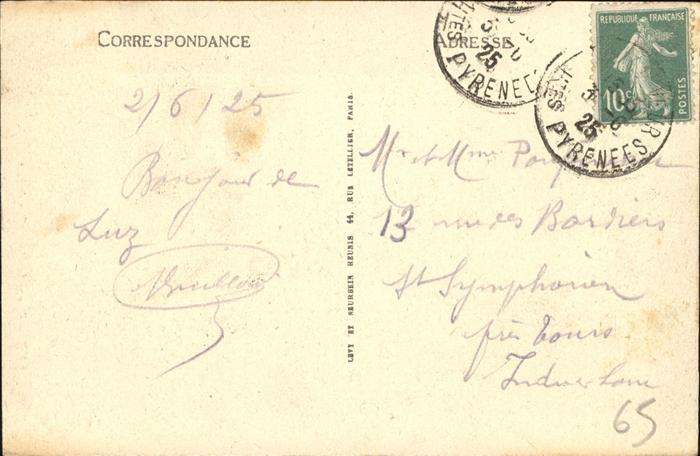 CORRESPONDANCE
2/6/25
Bonjour de
Luz
LEVY ET NEURDEIN REUNIS 44, RUE LETELLIER, PARIS.
ADRESSE
RÉPUBLIQUE FRANÇAISE
10c
POSTES
25
HTES PYRENEES
25
HTES PYRENEES
Mr et Mme
13 rue des Bordiers
St Symphorien
près Tours
Indre Loire
65